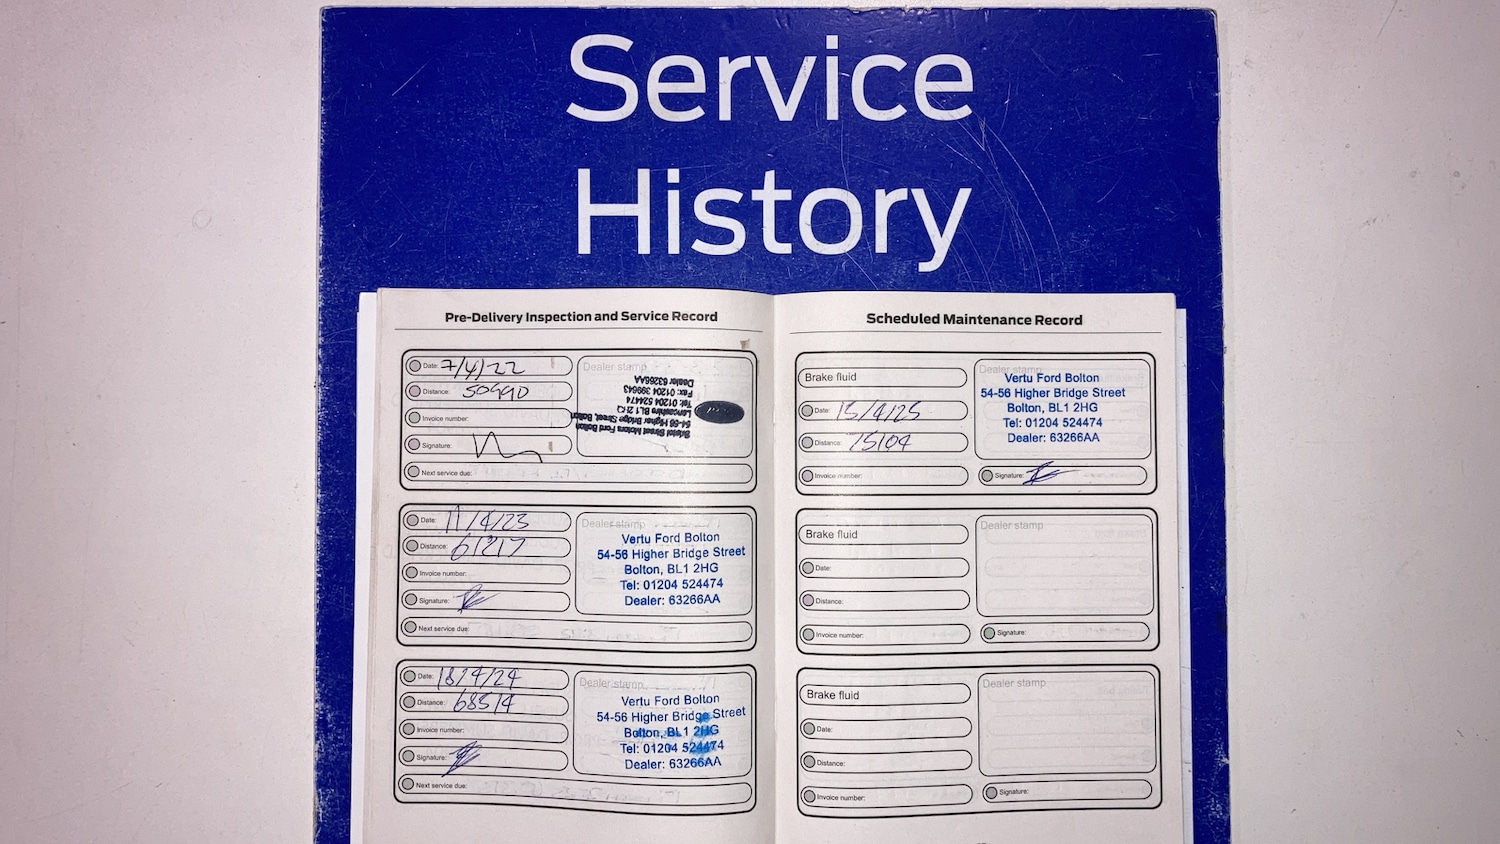 Service
History
Pre-Delivery Inspection and Service Record
Date: 7/4/22
Distance: 50990
Invoice number:
Signature:
Next service due:
Dealer stamp
Bristol Street Motors Ford Bolton
54-56 Higher Bridge Street, Bolton
Lancashire BL1 2HG
Tel: 01204 524474
Fax: 01204 399643
Dealer 63266AA
Date: 11/4/23
Distance: 61217
Invoice number:
Signature:
Next service due:
Dealer stamp
Vertu Ford Bolton
54-56 Higher Bridge Street
Bolton, BL1 2HG
Tel: 01204 524474
Dealer: 63266AA
Date: 18/4/24
Distance: 68514
Invoice number:
Signature:
Next service due:
Dealer stamp
Vertu Ford Bolton
54-56 Higher Bridge Street
Bolton, BL1 2HG
Tel: 01204 524474
Dealer: 63266AA
Scheduled Maintenance Record
Brake fluid
Date: 15/4/25
Distance: 75104
Invoice number:
Dealer stamp
Vertu Ford Bolton
54-56 Higher Bridge Street
Bolton, BL1 2HG
Tel: 01204 524474
Dealer: 63266AA
Signature:
Brake fluid
Date:
Distance:
Invoice number:
Dealer stamp
Signature:
Brake fluid
Date:
Distance:
Invoice number:
Dealer stamp
Signature: